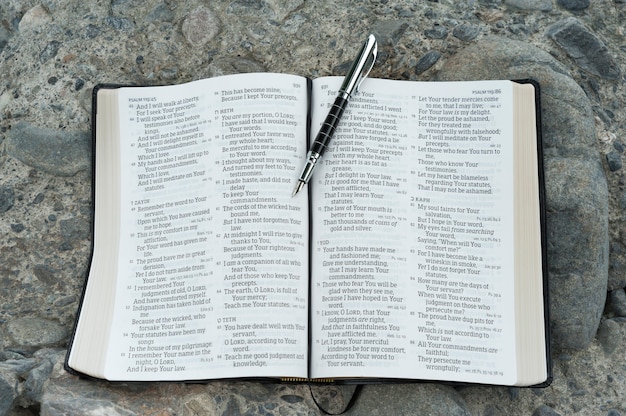 PSALM 119:45
45 And I will walk at liberty,
For I seek Your precepts.
46 I will speak of Your
testimonies also before
kings,
And will not be ashamed.
47 And I will delight myself in
Your commandments,
Which I love.
48 My hands also I will lift up to
Your commandments,
Which I love,
And I will meditate on Your
statutes.
ז ZAYIN
49 Remember the word to Your
servant,
Upon which You have caused
me to hope.
50 This is my comfort in my
affliction,
For Your word has given me
life.
51 The proud have me in great
derision,
Yet I do not turn aside from
Your law.
52 I remembered Your
judgments of old, O LORD,
And have comforted myself.
53 Indignation has taken hold of
me
Because of the wicked, who
forsake Your law.
54 Your statutes have been my
songs
In the house of my pilgrimage.
55 I remember Your name in
the night, O LORD,
And I keep Your law.
56 This has become mine,
Because I kept Your precepts.
ח HETH
57 You are my portion, O LORD;
I have said that I would keep
Your words.
58 I entreated Your favor with
my whole heart;
Be merciful to me according
to Your word.
59 I thought about my ways,
And turned my feet to Your
testimonies.
60 I made haste, and did not
delay
To keep Your
commandments.
61 The cords of the wicked have
bound me,
But I have not forgotten Your
law.
62 At midnight I will rise to give
thanks to You,
Because of Your righteous
judgments.
63 I am a companion of all who
fear You,
And of those who keep Your
precepts.
64 The earth, O LORD, is full of
Your mercy;
Teach me Your statutes.
ט TETH
65 You have dealt well with Your
servant,
O LORD, according to Your
word.
66 Teach me good judgment and
knowledge,
For
commandments.
was afflicted I went
keep Your
are good, and do good;
me Your statutes.
proud have forged a lie
against me;
I will keep Your precepts
with my whole heart.
70 Their heart is as fat as
grease,
But I delight in Your law.
71 It is good for me that I have
been afflicted,
That I may learn Your
statutes.
72 The law of Your mouth is
better to me
Than thousands of coins of
gold and silver.
י YOD
73 Your hands have made me
and fashioned me;
Give me understanding,
that I may learn Your
commandments.
74 Those who fear You will be
glad when they see me,
Because I have hoped in Your
word.
75 I know, O LORD, that Your
judgments are right,
And that in faithfulness You
have afflicted me.
76 Let, I pray, Your merciful
kindness be for my comfort,
According to Your word to
Your servant.
PSALM 119:86
77 Let Your tender mercies come
to me, that I may live;
For Your law is my delight.
78 Let the proud be ashamed,
For they treated me
wrongfully with falsehood;
But I will meditate on Your
precepts.
79 Let those who fear You turn to
me,
Those who know Your
testimonies.
80 Let my heart be blameless
regarding Your statutes,
That I may not be ashamed.
כ KAPH
81 My soul faints for Your
salvation,
But I hope in Your word.
82 My eyes fail from searching
Your word,
Saying, "When will You
comfort me?"
83 For I have become like a
wineskin in smoke,
Yet I do not forget Your
statutes.
84 How many are the days of
Your servant?
When will You execute
judgment on those who
persecute me?
85 The proud have dug pits for
me,
Which is not according to
Your law.
86 All Your commandments are
faithful;
They persecute me
wrongfully;